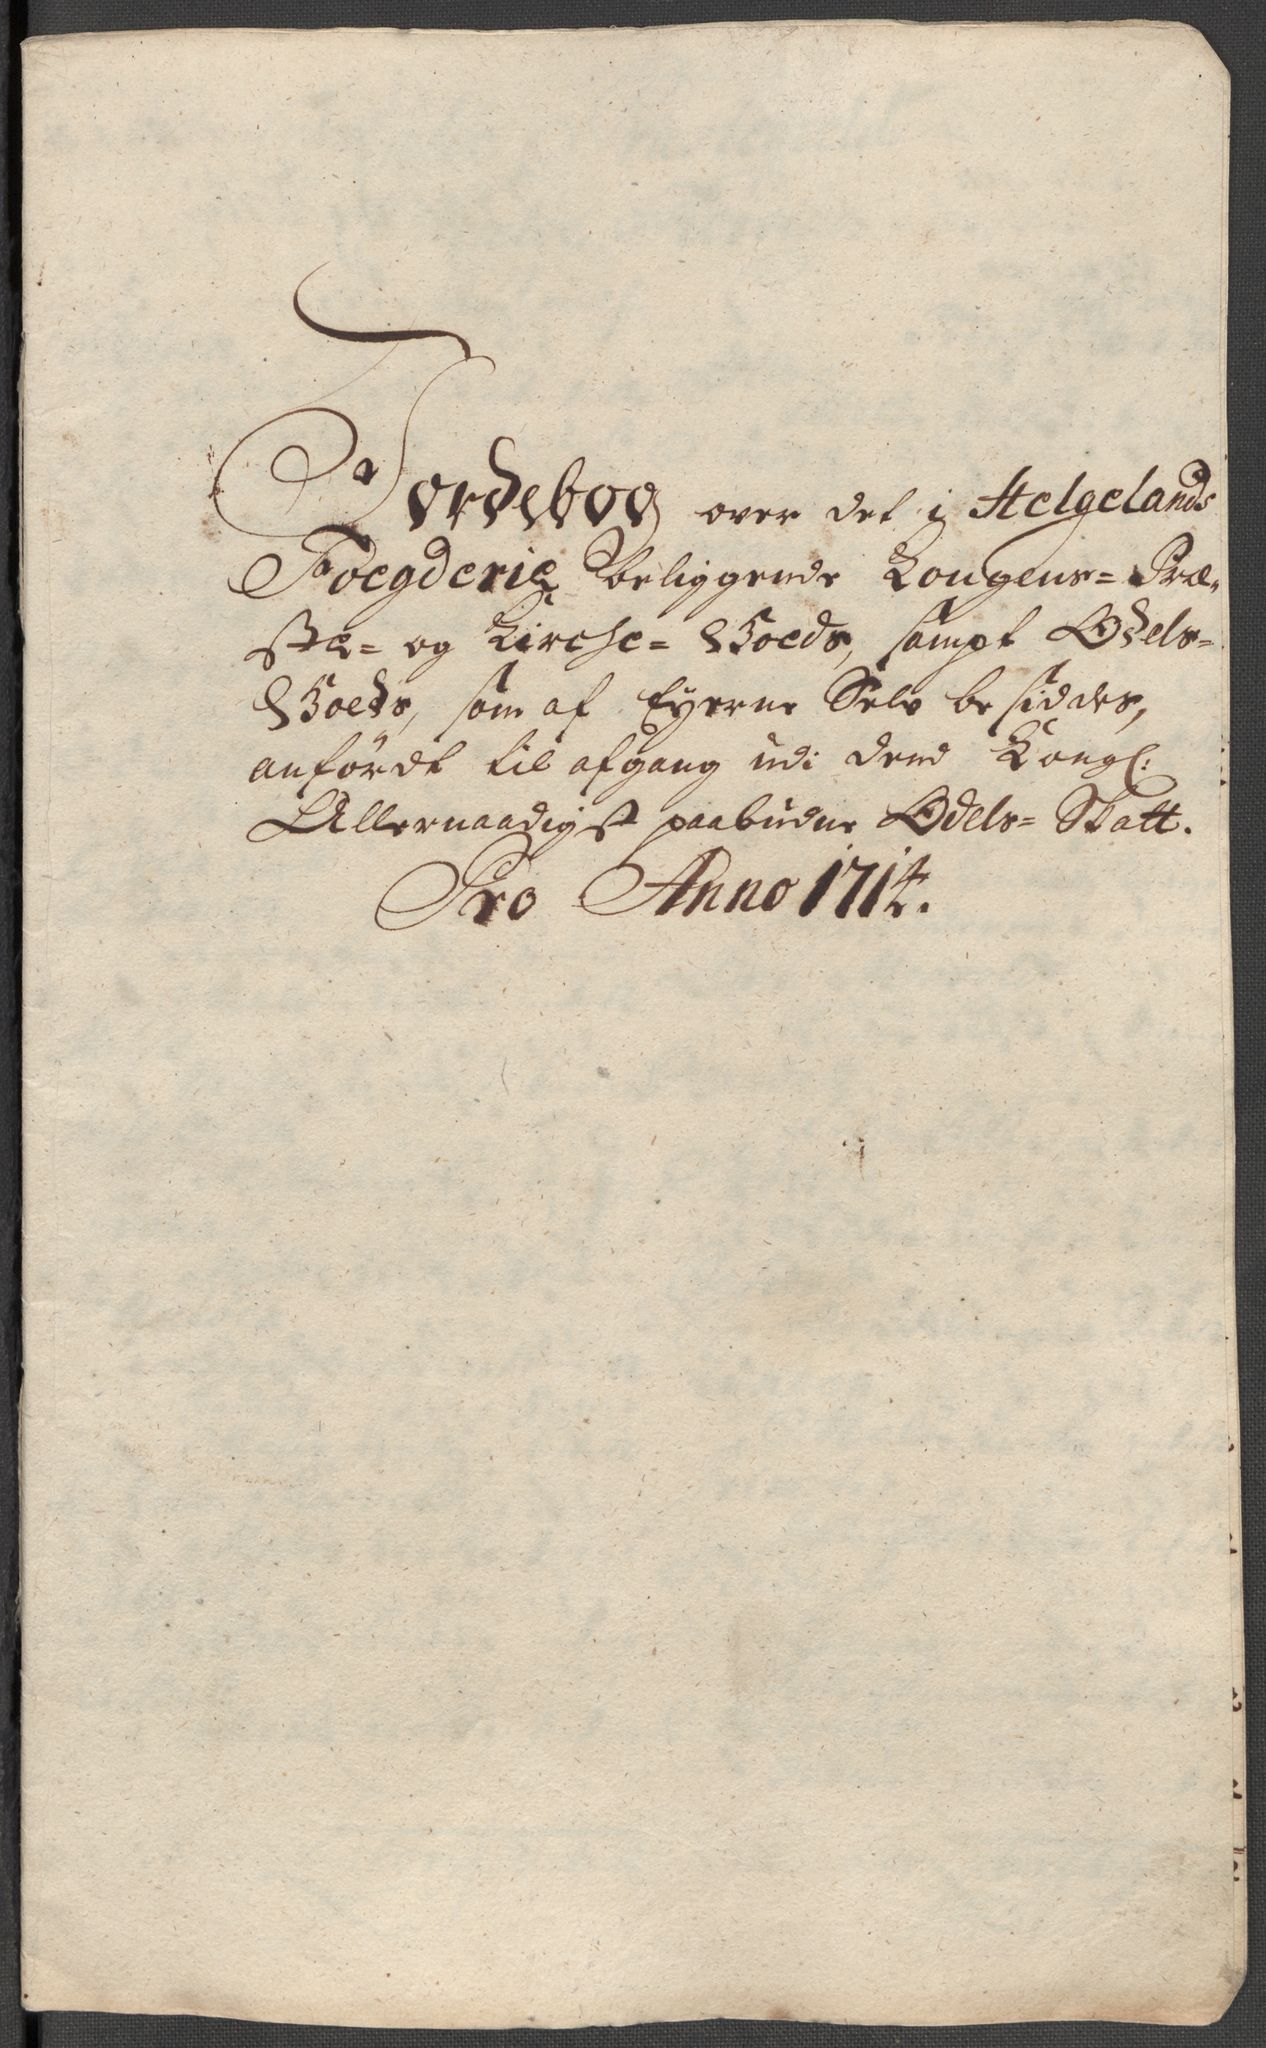 Jordebog over det i Helgelands
Foegderie beliggende Kongens= Præ=
ste= og Kirche= Goeds, sampt Odels=
Goeds, som af Eyerne Selv besiddes,
anfördt til afgang udi dend Kongl:
Allernaadigst paabudne Odels= Skatt.
Pro Anno 1714.